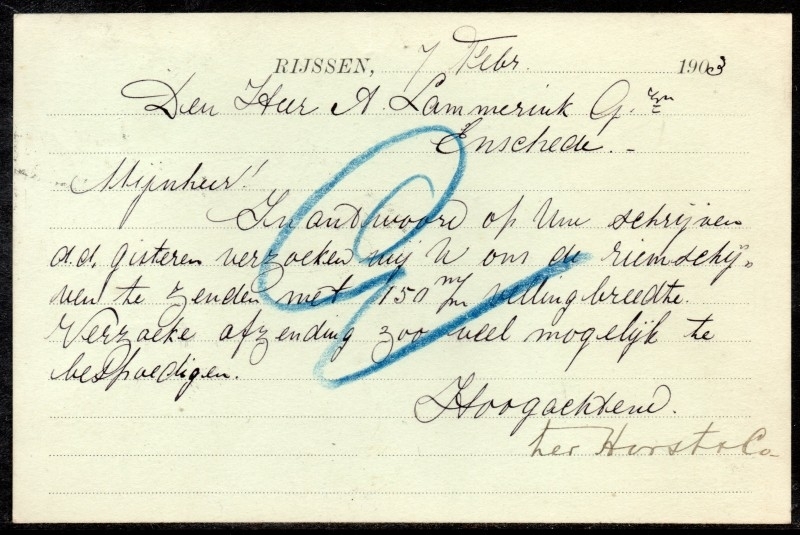 RIJSSEN, 7 Febr. 1903
Den Heer A. Lammerink G. zn
Enschede. -
Mijnheer!
In antwoord op Uw schrijven
d.d. gisteren verzoeken wij U ons de riemschij-
ven te zenden met 150 m/m vellingbreedte.
Verzoeke afzending zooveel mogelijk te
bespoedigen.
Hoogachtend.
ter Horst & Co